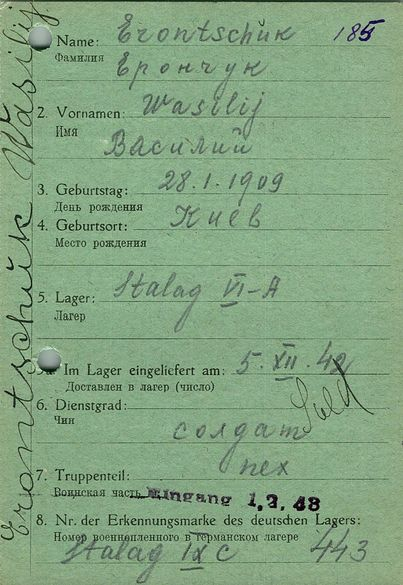 Erontschuk Wasilij
185
Name: Erontschuk
Фамилия
Ерончук
2. Vornamen: Wasilij
Имя
Василий
3. Geburtstag: 28.1.1909
День рождения
4. Geburtsort: Киев
Место рождения
5. Lager: Stalag VI-A
Лагер
Im Lager eingeliefert am: 5. XII. 42
Доставлен в лагер (число)
6. Dienstgrad: Sold
Чин
солдат
7. Truppenteil: пех
Воинская часть Eingang 1.3.43
8. Nr. der Erkennungsmarke des deutschen Lagers:
Номер военнопленного в германском лагере
Stalag IX C 443